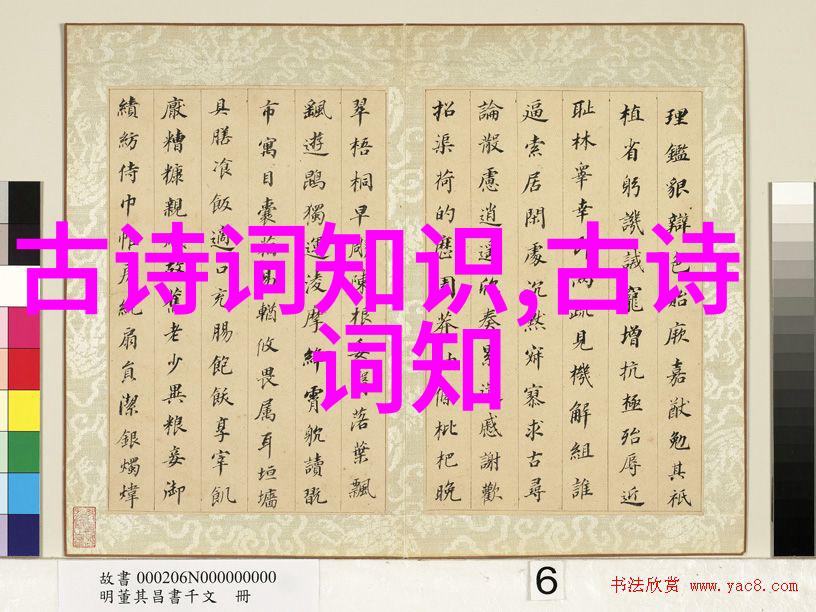 理鑑貌辯色貽厥嘉猷勉其祗
植省躬譏誡寵增抗極殆辱近
耻林睾幸兩疏見機解組誰
逼索居閑處沉默寂寥求古尋
論散慮逍遙欣奏累慼謝歡
招渠荷的歷園莽條枇杷晚
翠梧桐早凋陳根委落葉飄
飖遊鵾獨運凌摩絳霄躭讀翫
市寓目囊箱易輶攸畏属耳垣墻
具膳飡飯適口充腸飽飫享宰飢
厭糟糠親故舊老少異粮妾御
績紡侍巾帷房紈扇員潔銀燭煒
古诗词知识,古诗
词知
故書 000206N000000000
明董其昌書千文 冊
6
书法欣赏 www.yac8.com